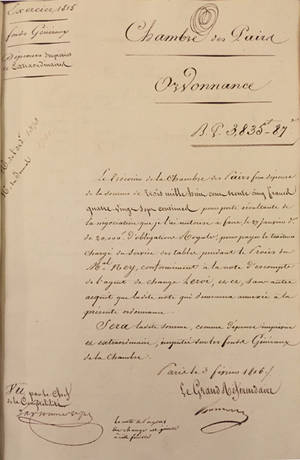 Exercice 1815
fonds Généraux
Dépenses imprévues
et Extraordinaires
Chambre des Pairs
Ordonnance
B.P. 3,835f 87c
Le Trésorier de la Chambre des Pairs fera dépense
de la somme de trois mille huit cent trente cinq francs
quatre vingt sept centimes pour perte résultante de
la négociation que je l'ai autorisé à faire le 27 janvier dr
de 20,000f d'obligations Royales, pour payer le traiteur
chargé du service des tables pendant le Procès du
Mal Ney, conformément à la note d'escompte
de l'agent de change Leroi, et ce, sans autre
acquit que ladite note qui demeurera annexée à la
présente ordonnance.
Sera ladite somme, comme dépense imprévue
et extraordinaire, imputée sur les fonds Généraux
de la Chambre.
Paris le 3 février 1816
Le Grand Référendaire
Vu par le Chef
de la Comptabilité
la note de l'agent
de change est jointe